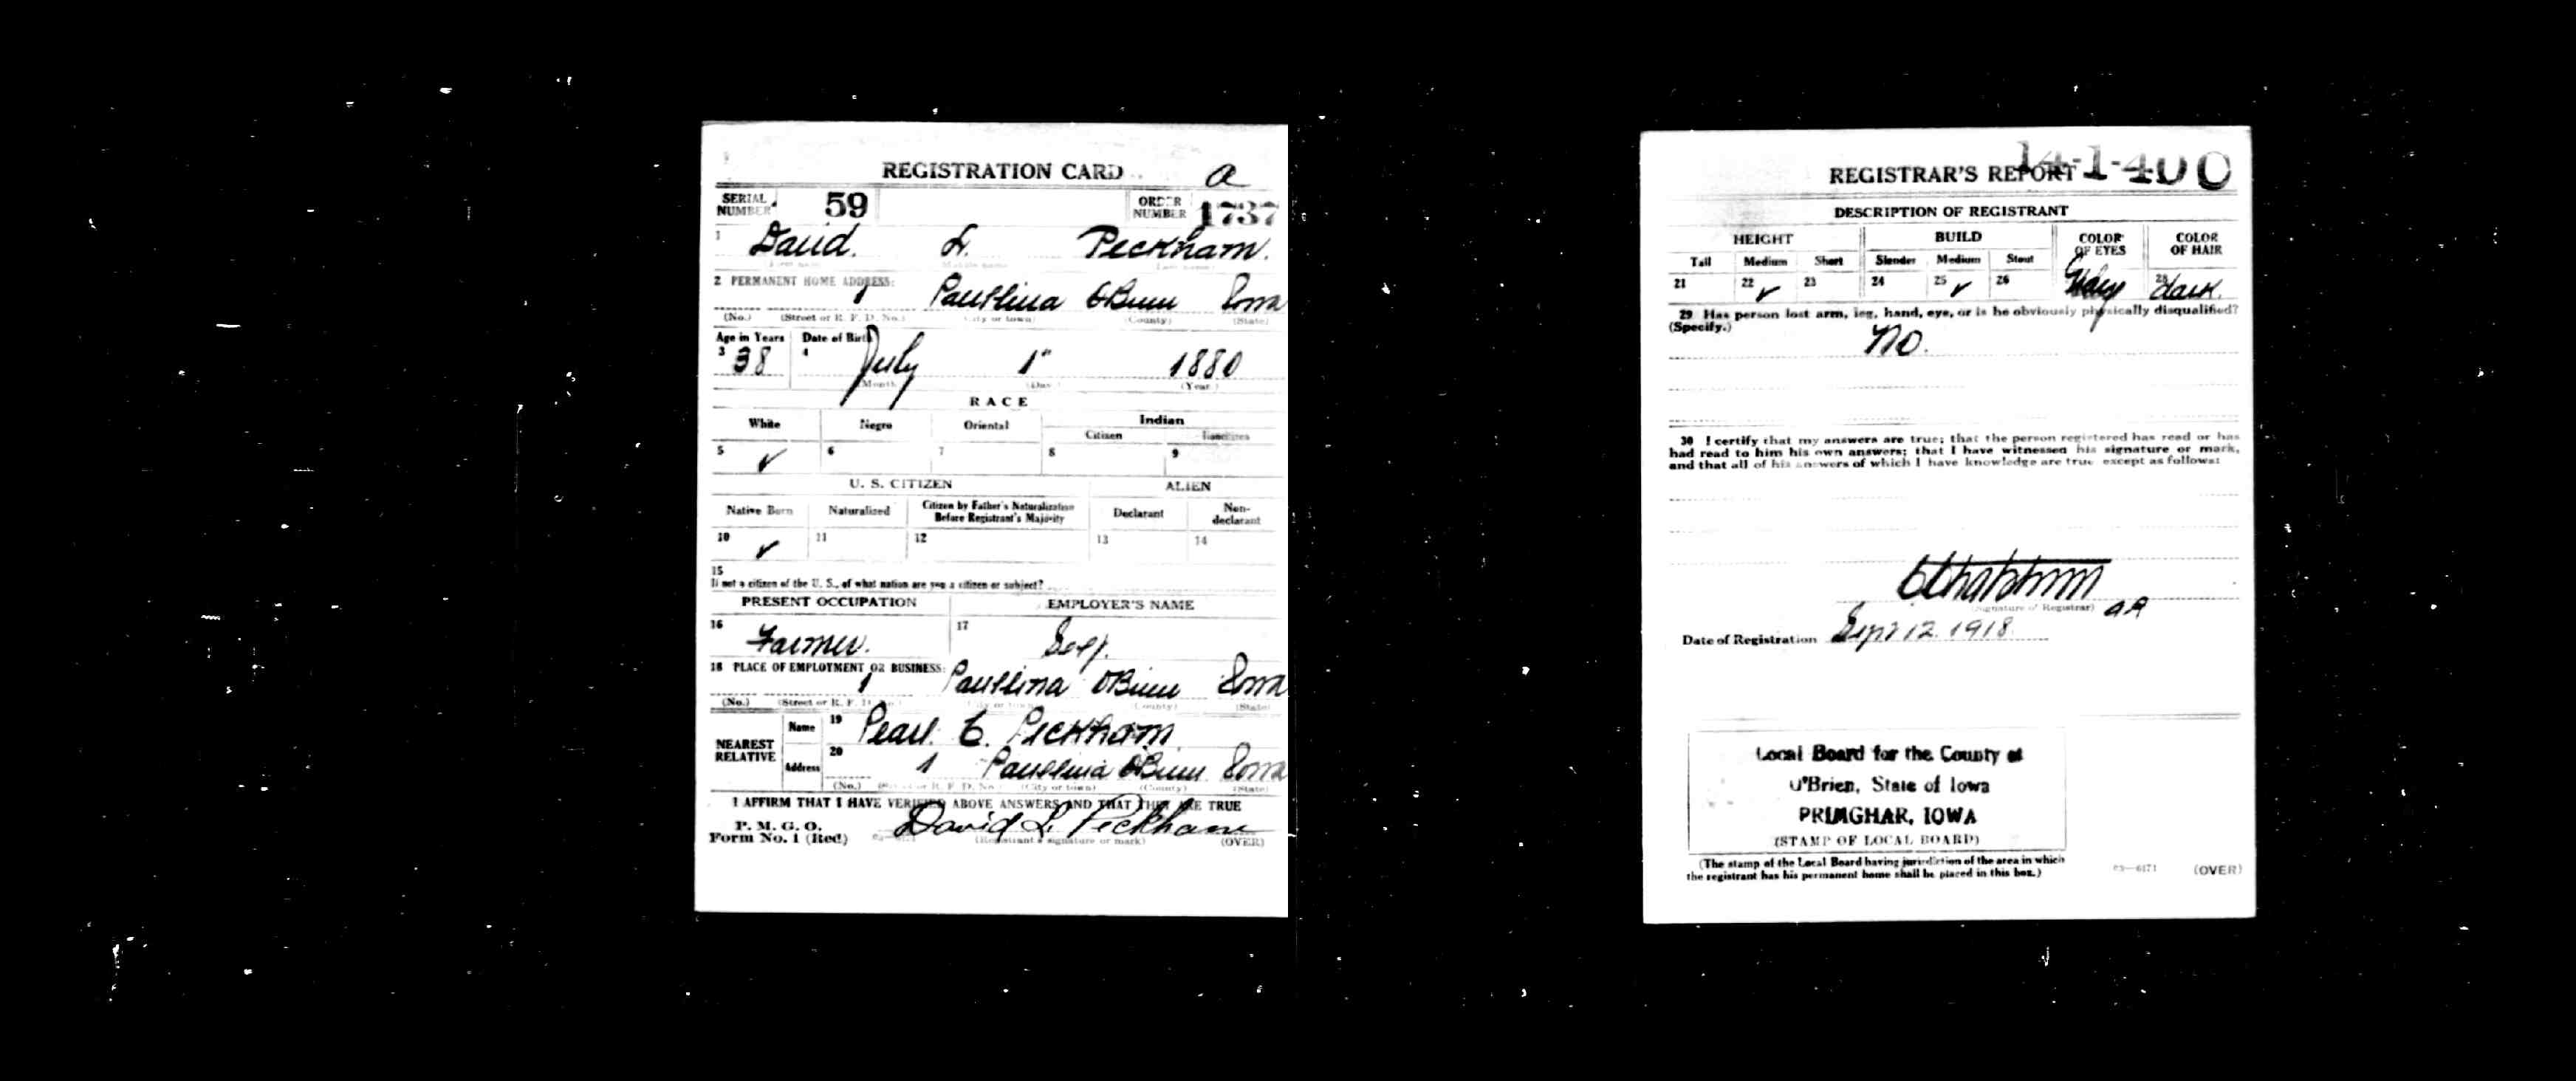 REGISTRATION CARD a
SERIAL NUMBER 59 ORDER NUMBER 1737
1 David L. Peckham.
(First name) (Middle name) (Last name)
2 PERMANENT HOME ADDRESS:
1 Paullina OBrien Iowa
(No.) (Street or R. F. D. No.) (City or town) (County) (State)
Age in Years Date of Birth
3 38 4 July 1" 1880
(Month) (Day) (Year)
RACE
White Negro Oriental Indian
Citizen Noncitizen
5 ✓ 6 7 8 9
U. S. CITIZEN ALIEN
Native Born Naturalized Citizen by Father's Naturalization Before Registrant's Majority Declarant Non-declarant
10 ✓ 11 12 13 14
15
If not a citizen of the U. S., of what nation are you a citizen or subject?
PRESENT OCCUPATION EMPLOYER'S NAME
16 Farmer. 17 Self.
18 PLACE OF EMPLOYMENT OR BUSINESS:
1 Paullina OBrien Iowa
(No.) (Street or R. F. D. No.) (City or town) (County) (State)
NEAREST RELATIVE
Name 19 Pearl C. Peckham
Address 20 1 Paullina OBrien Iowa
(No.) (Street or R. F. D. No.) (City or town) (County) (State)
I AFFIRM THAT I HAVE VERIFIED ABOVE ANSWERS AND THAT THEY ARE TRUE
P. M. G. O.
Form No. 1 (Red) David L. Peckham
(Registrant's signature or mark) (OVER)
14-1-400
REGISTRAR'S REPORT
DESCRIPTION OF REGISTRANT
HEIGHT BUILD COLOR OF EYES COLOR OF HAIR
Tall Medium Short Slender Medium Stout
21 22 ✓ 23 24 25 ✓ 26 28 dark.
29 Has person lost arm, leg, hand, eye, or is he obviously physically disqualified?
(Specify.)
No.
30 I certify that my answers are true; that the person registered has read or has
had read to him his own answers; that I have witnessed his signature or mark,
and that all of his answers of which I have knowledge are true except as follows:
(Signature of Registrar)
Date of Registration Sept 12. 1918
Local Board for the County of
O'Brien, State of Iowa
PRIMGHAR, IOWA
(STAMP OF LOCAL BOARD)
(The stamp of the Local Board having jurisdiction of the area in which
the registrant has his permanent home shall be placed in this box.)
03—6171 (OVER)